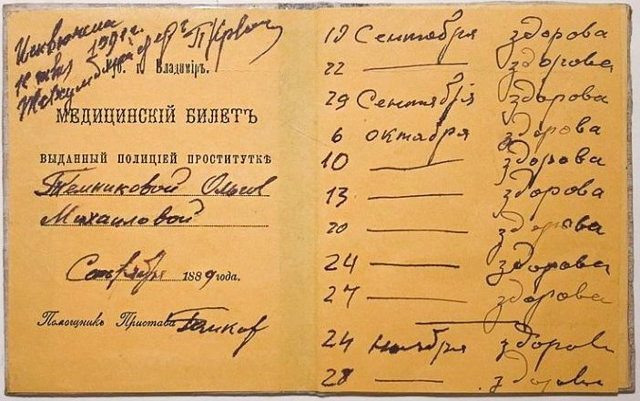 1901 г.
г. Владиміръ.
МЕДИЦИНСКІЙ БИЛЕТЪ
ВЫДАННЫЙ ПОЛИЦІЕЙ ПРОСТИТУТКѢ
Ольгѣ
Михаиловой
Сентября 1889 года.
Помощникъ Пристава
19 Сентября здорова
22 — здорова
29 Сентября здорова
6 октября здорова
10 — здорова
13 — здорова
20 — здорова
24 — здорова
27 — здорова
24 ноября здорова
28 — здорова